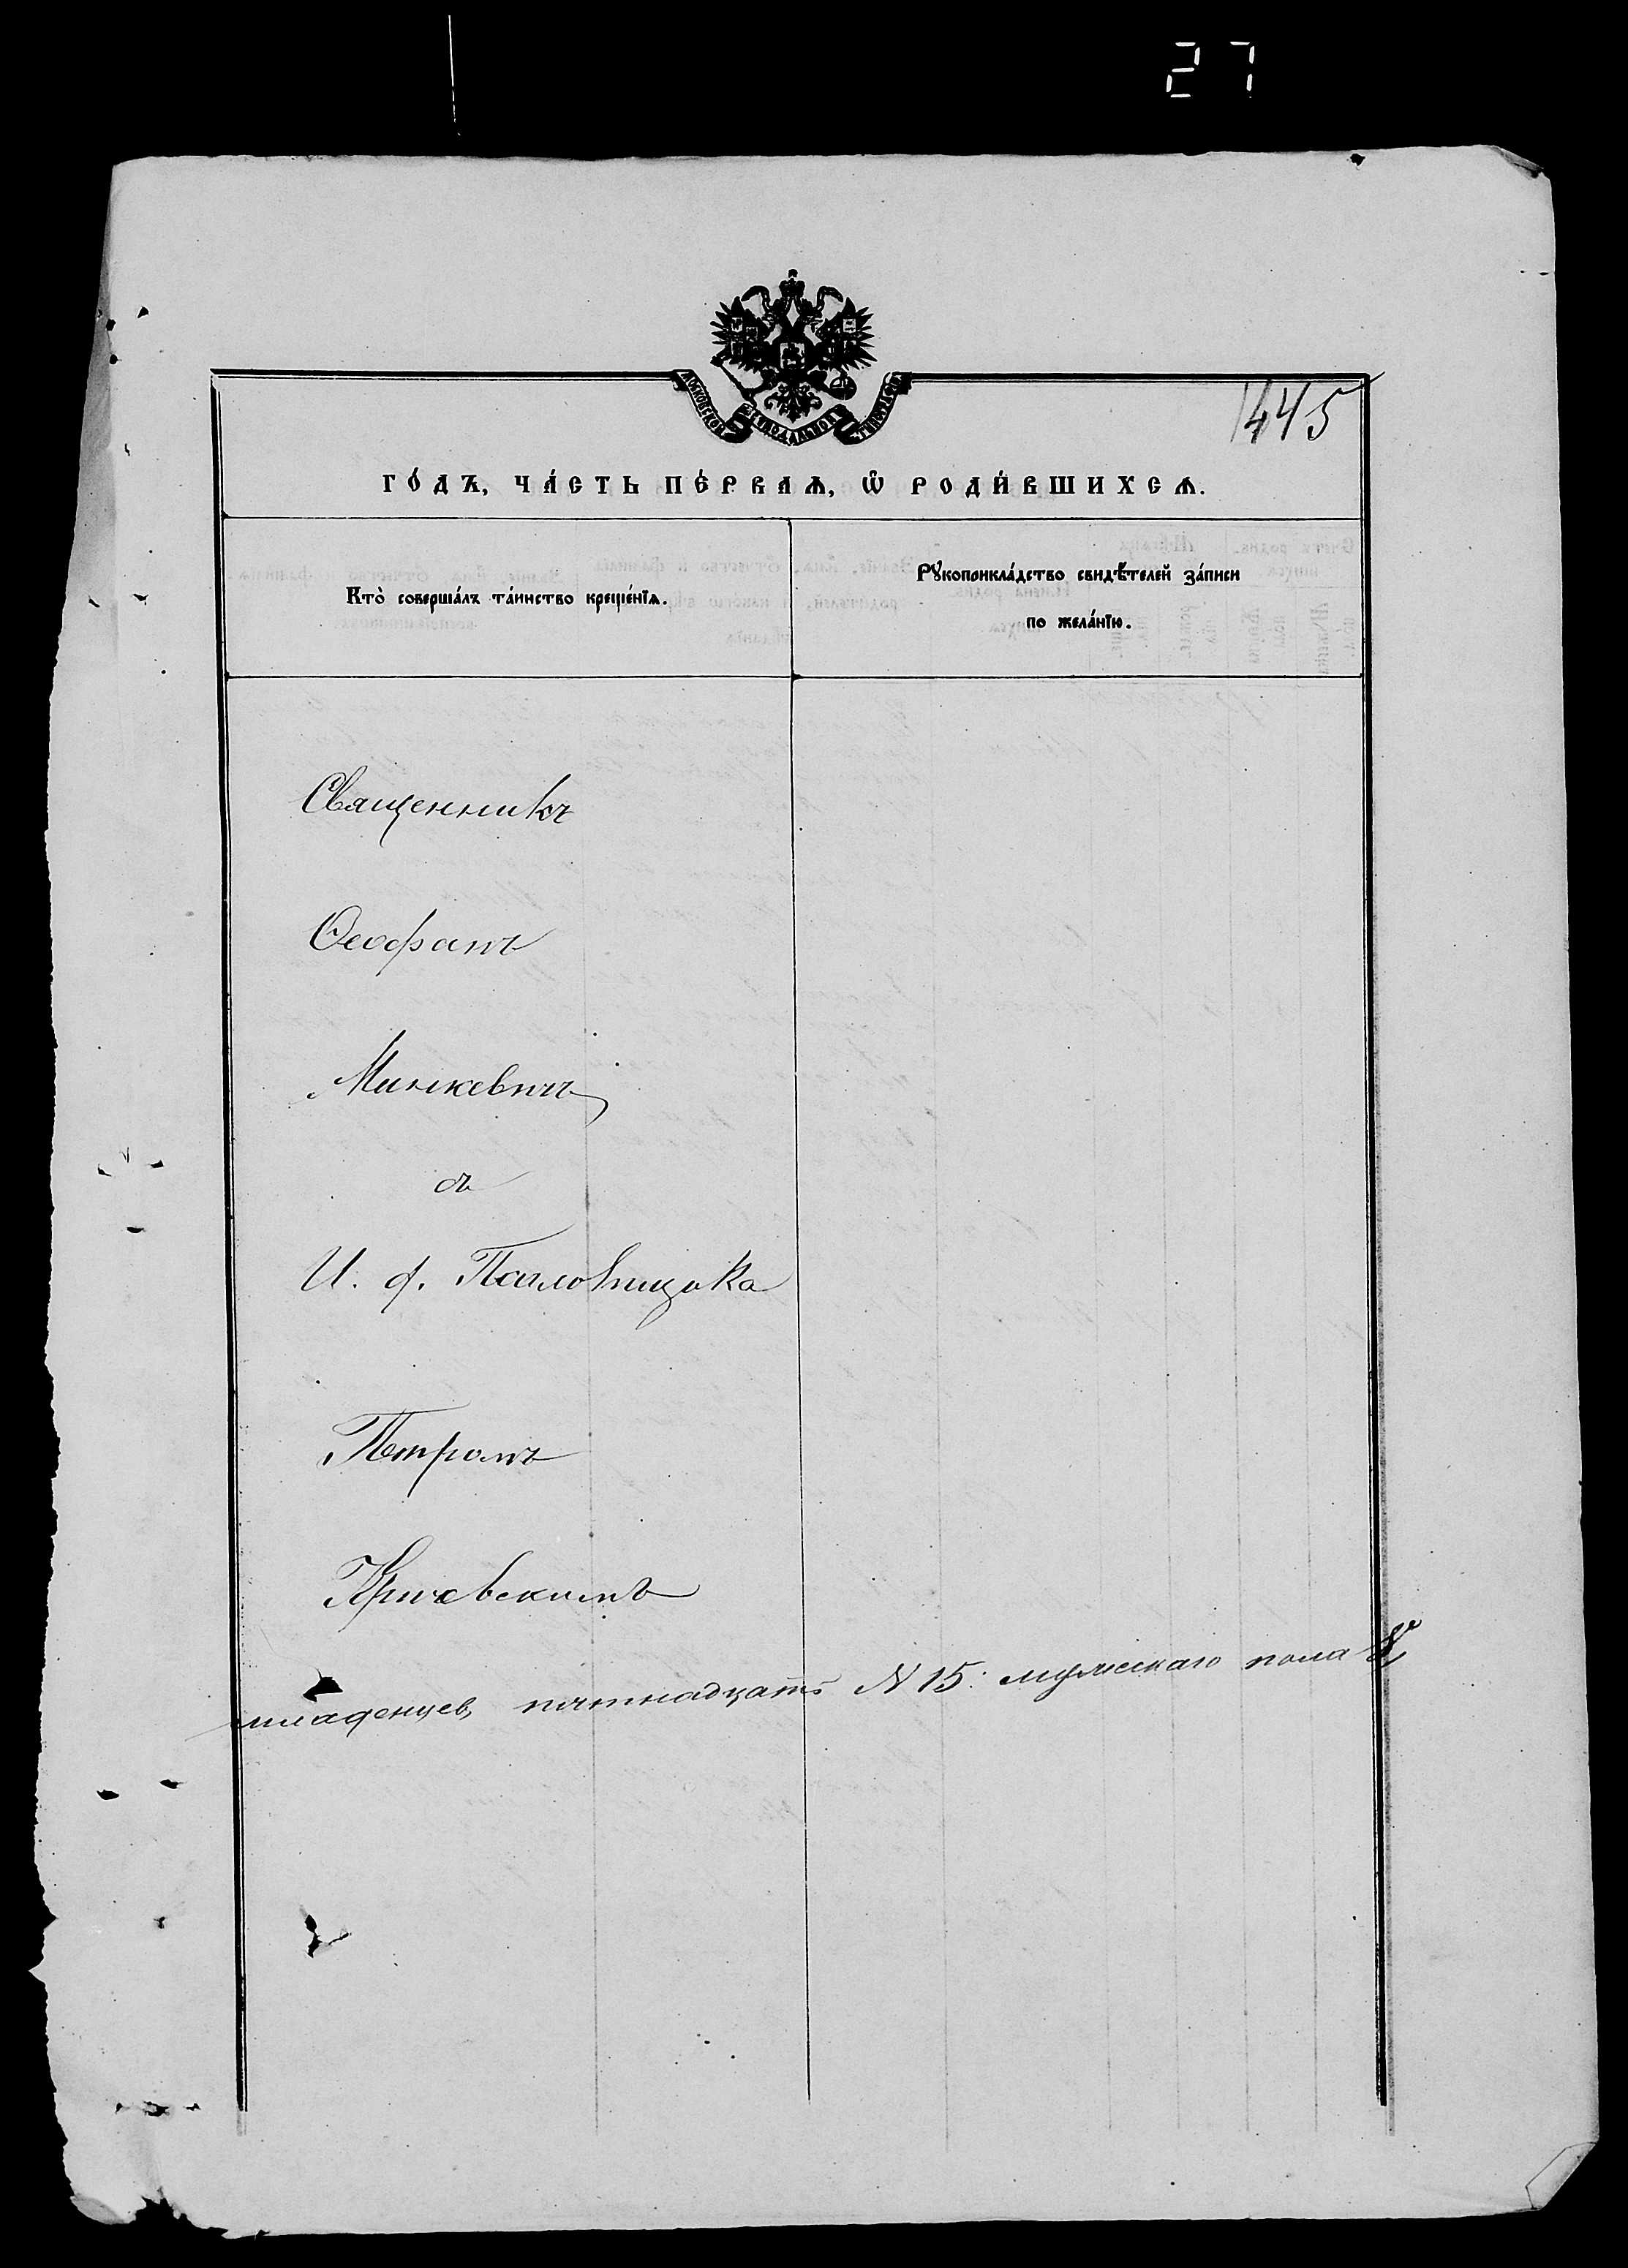 27
МОСКОВСКОЙ СѴНОДАЛЬНОЙ ТѴПОГРАФІИ
445
ГО́ДЪ, ЧА́СТЬ ПЕ́РВАѦ, Ѽ РОДИ́ВШИХСѦ.
Кто̀ соверша́лъ та́инство креще́нїѧ.
Рꙋкоприкла́дство свидѣ́телей за́писи
по жела́нїю.
Священникъ
Ѳеофанъ
Минкевичъ
съ
И. д. Псаломщика
Петромъ
Кричевскимъ
младенцевъ пятнадцать N 15: мужескаго пола